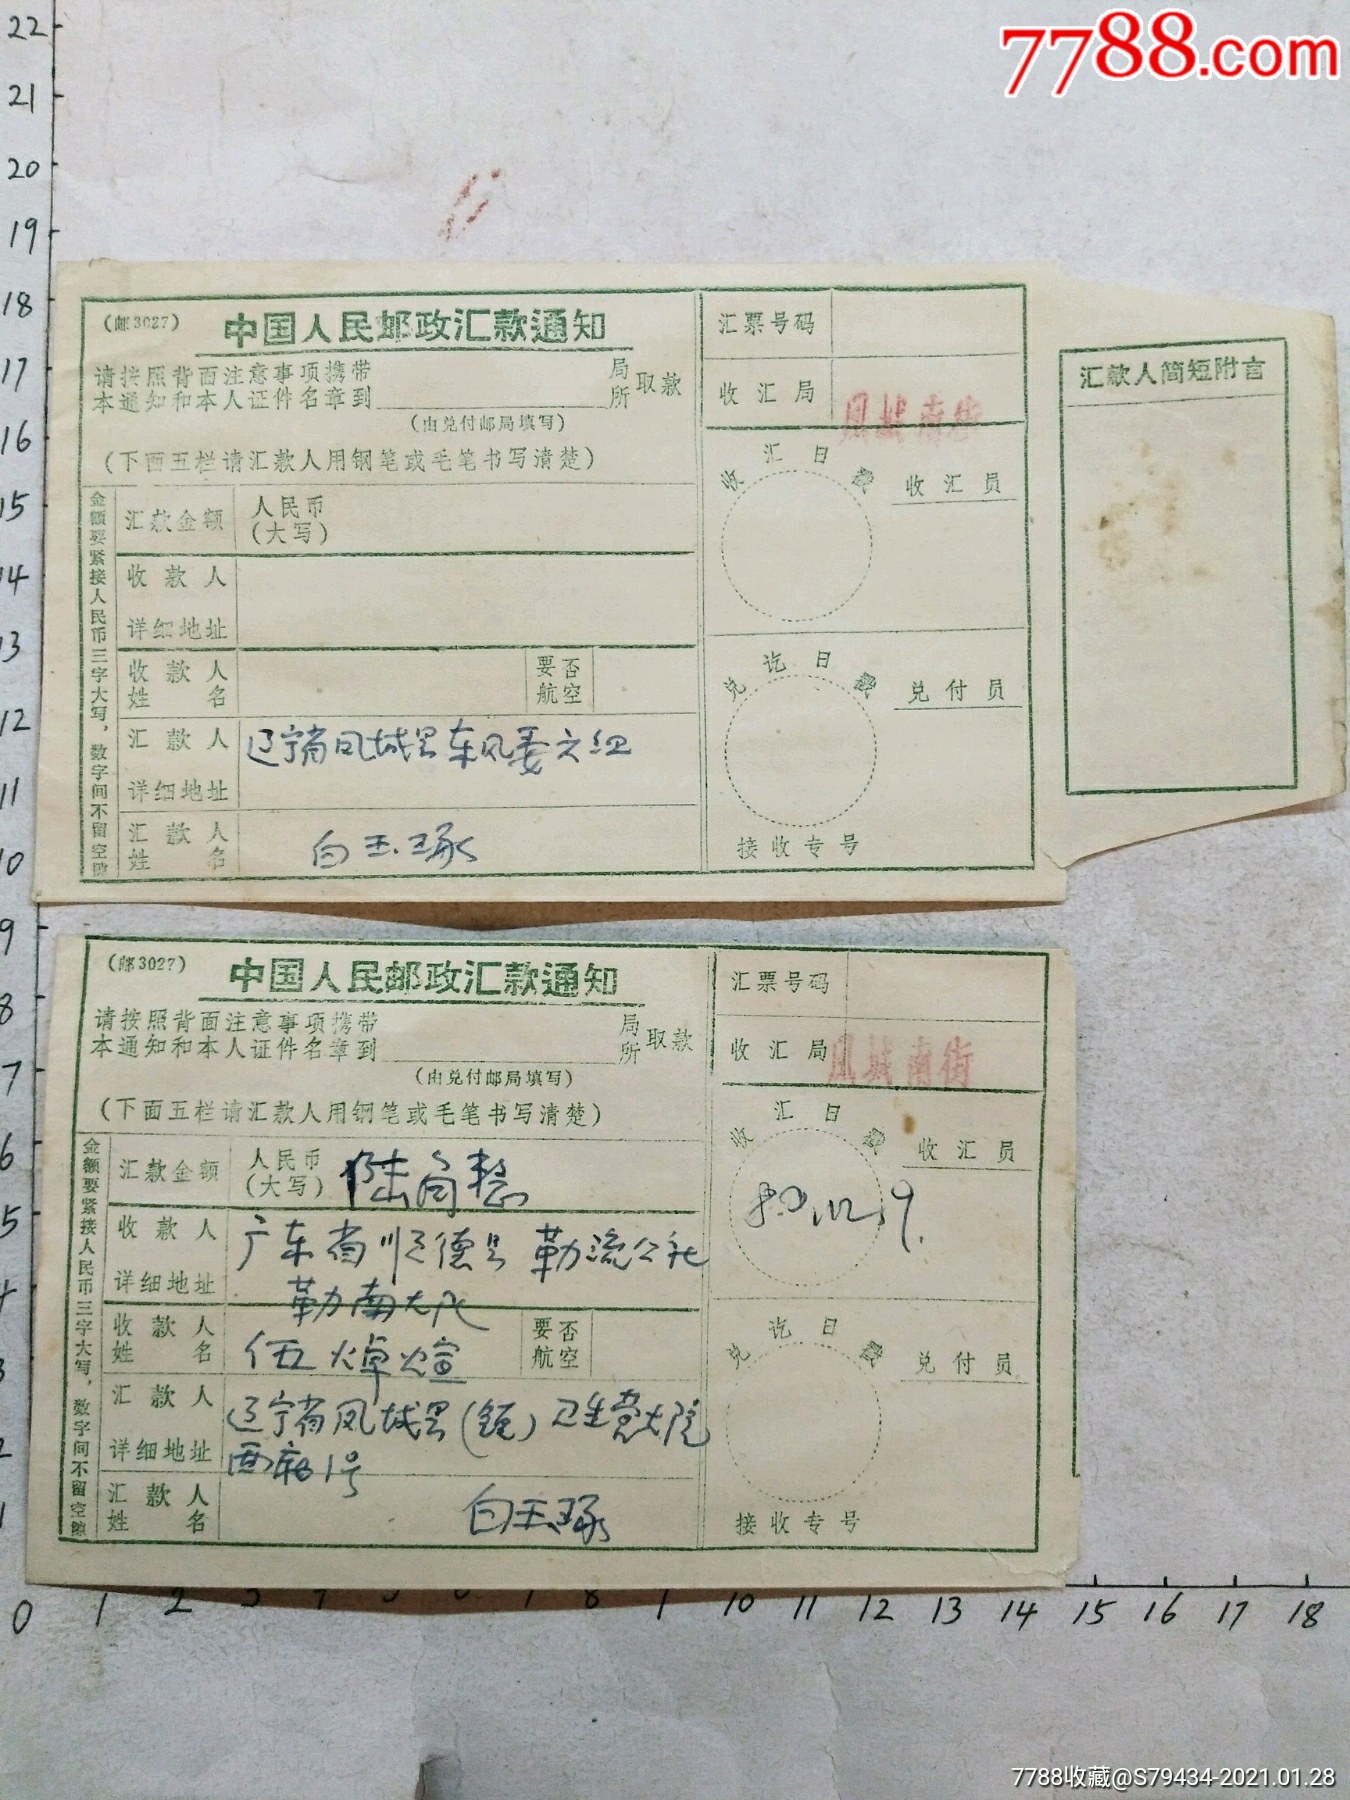 7788.com
22
21
20
19
18
17
16
15
14
13
12
11
10
9
8
7
6
5
4
3
2
1
0
(邮3027)
中国人民邮政汇款通知
请按照背面注意事项携带
本通知和本人证件名章到
局
所
取款
(由兑付邮局填写)
(下面五栏请汇款人用钢笔或毛笔书写清楚)
金额要紧接人民币三字大写，数字间不留空隙
汇款金额
人民币
(大写)
收款人
详细地址
收款人
姓名
要否
航空
汇款人
详细地址
辽宁省凤城县东凤委六组
汇款人
姓名
白玉琢
汇票号码
收汇局
凤城南街
收汇日戳
收汇员
兑讫日戳
兑付员
接收专号
汇款人简短附言
(邮3027)
中国人民邮政汇款通知
请按照背面注意事项携带
本通知和本人证件名章到
局
所
取款
(由兑付邮局填写)
(下面五栏请汇款人用钢笔或毛笔书写清楚)
金额要紧接人民币三字大写，数字间不留空隙
汇款金额
人民币
(大写)
陆角整
收款人
详细地址
广东省顺德县勒流公社
勒南大队
收款人
姓名
伍焯煊
要否
航空
汇款人
详细地址
辽宁省凤城县(镇)卫生党大院
西厢1号
汇款人
姓名
白玉琢
汇票号码
收汇局
凤城南街
收汇日戳
80.12.19.
收汇员
兑讫日戳
兑付员
接收专号
1 2 3 4 5 6 7 8 9 10 11 12 13 14 15 16 17 18
7788收藏@S79434-2021.01.28